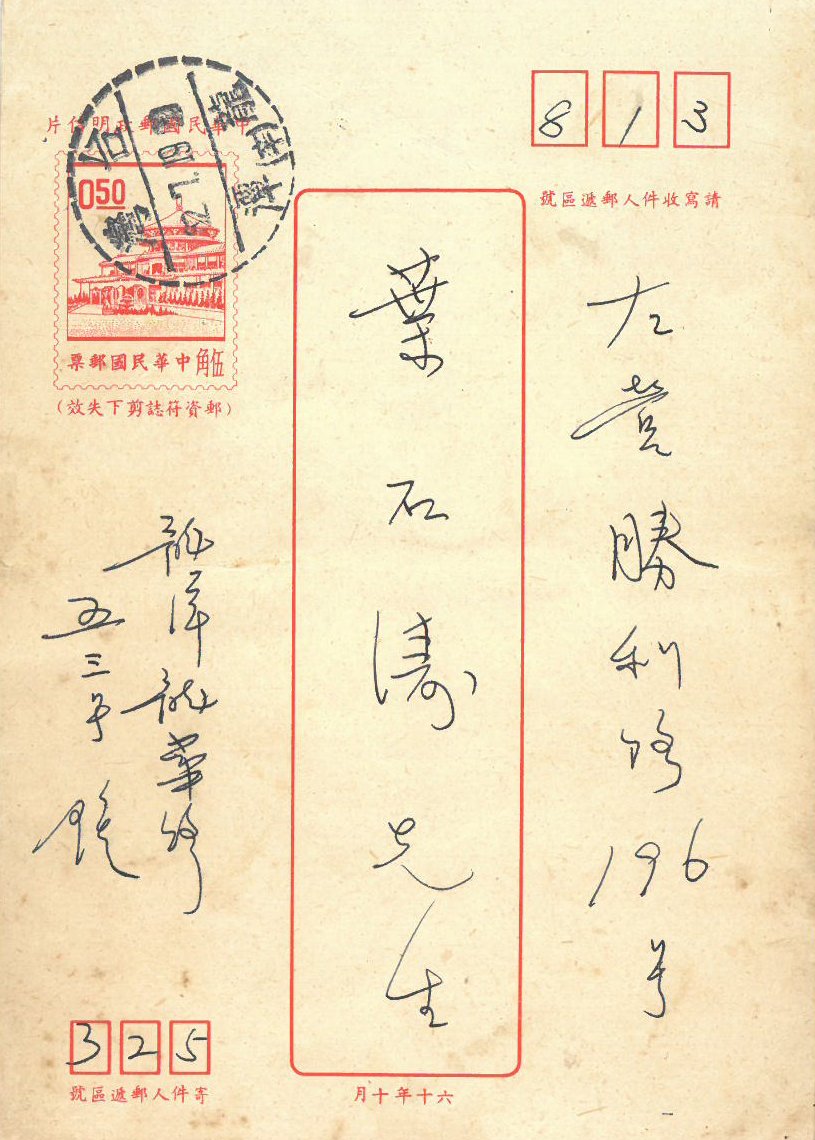 813
請寫收件人郵遞區號
左營勝利路196号
葉石濤先生
中華民國郵政明信片
0.50
伍角中華民國郵票
(郵資符誌剪下失效)
龍潭龍華路
五三号 鍾
325
寄件人郵遞區號
六十年十月